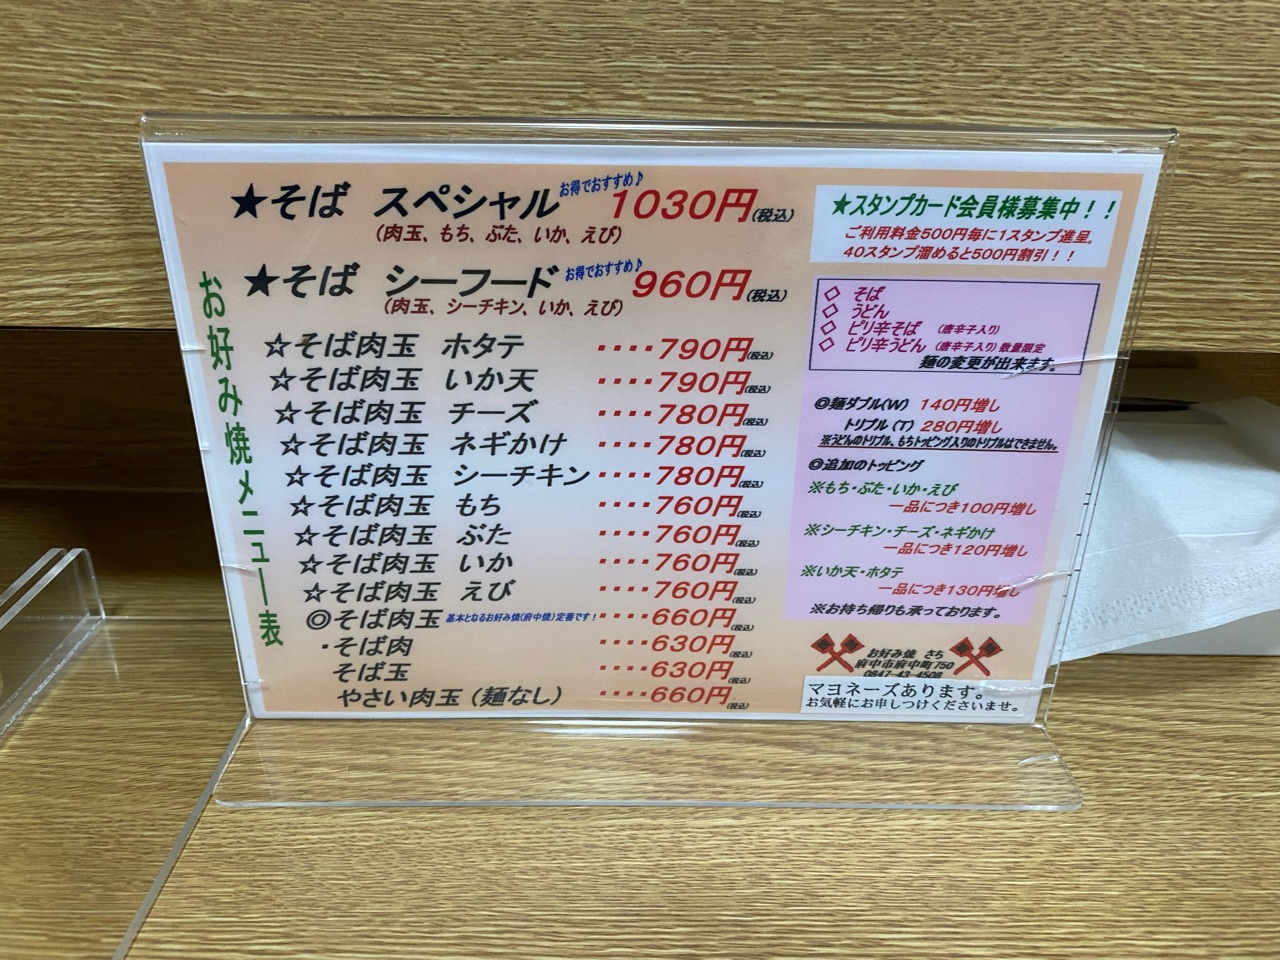 お好み焼メニュー表
★そば スペシャル お得でおすすめ♪ 1030円(税込)
(肉玉、もち、ぶた、いか、えび)
★そば シーフード お得でおすすめ♪ 960円(税込)
(肉玉、シーチキン、いか、えび)
☆そば肉玉 ホタテ ････790円(税込)
☆そば肉玉 いか天 ････790円(税込)
☆そば肉玉 チーズ ････780円(税込)
☆そば肉玉 ネギかけ ････780円(税込)
☆そば肉玉 シーチキン ････780円(税込)
☆そば肉玉 もち ････760円(税込)
☆そば肉玉 ぶた ････760円(税込)
☆そば肉玉 いか ････760円(税込)
☆そば肉玉 えび ････760円(税込)
◎そば肉玉 基本となるお好み焼(府中焼)定番です！ ････660円(税込)
・そば肉 ････630円(税込)
そば玉 ････630円(税込)
やさい肉玉(麺なし) ････660円(税込)
★スタンプカード会員様募集中！！
ご利用料金500円毎に1スタンプ進呈。
40スタンプ溜めると500円割引！！
◇ そば
◇ うどん
◇ ピリ辛そば (唐辛子入り)
◇ ピリ辛うどん (唐辛子入り)数量限定
麺の変更が出来ます。
◎麺ダブル(W) 140円増し
トリプル(T) 280円増し
※うどんのトリプル、もちトッピング入りのトリプルはできません。
◎追加のトッピング
※もち・ぶた・いか・えび
一品につき100円増し
※シーチキン・チーズ・ネギかけ
一品につき120円増し
※いか天・ホタテ
一品につき130円増し
※お持ち帰りも承っております。
お好み焼 さち
府中市府中町750
0847-43-4508
マヨネーズあります。
お気軽にお申しつけくださいませ。